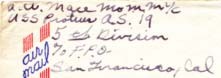 A.A. Mace MoMM 1/c
USS Proteus A.S. 19
5th Division
To F.P.O.
San Francisco, Cal
air mail